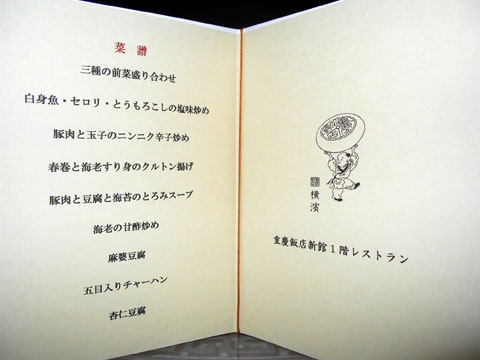 菜譜
三種の前菜盛り合わせ
白身魚・セロリ・とうもろこしの塩味炒め
豚肉と玉子のニンニク辛子炒め
春巻と海老すり身のクルトン揚げ
豚肉と豆腐と海苔のとろみスープ
海老の甘酢炒め
麻婆豆腐
五目入りチャーハン
杏仁豆腐
横濱
重慶飯店新館1階レストラン